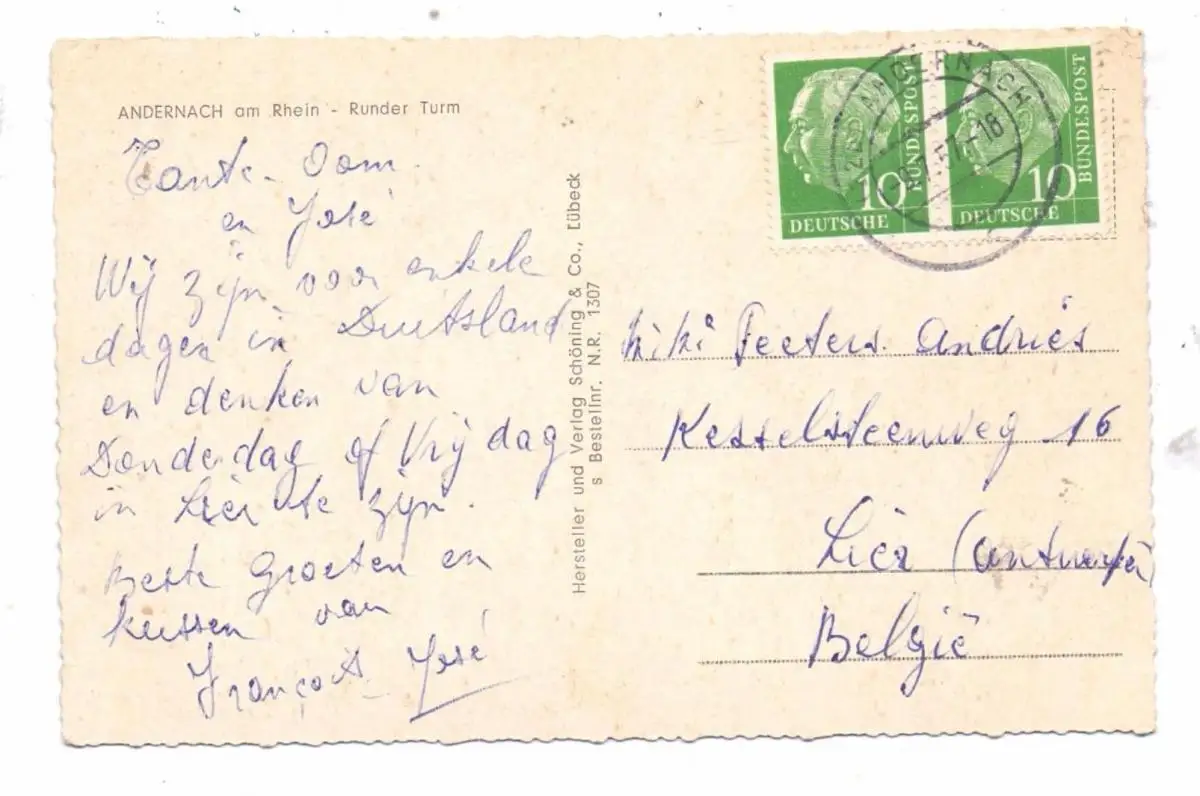 ANDERNACH am Rhein - Runder Turm
Tante - Oom
en José
Wij zijn voor enkele
dagen in Duitsland
en denken van
Donderdag of Vrijdag
in Lier te zijn.
Beste Groeten en
kussen van
José
Hersteller und Verlag Schöning & Co., Lübeck
s Bestellnr. N.R. 1307
10 BUNDESPOST
DEUTSCHE
10 BUNDESPOST
DEUTSCHE
ANDERNACH
57.-18
Kiki Peeters Andries
Kesselsteenweg 16
Lier (Antwerpen)
België